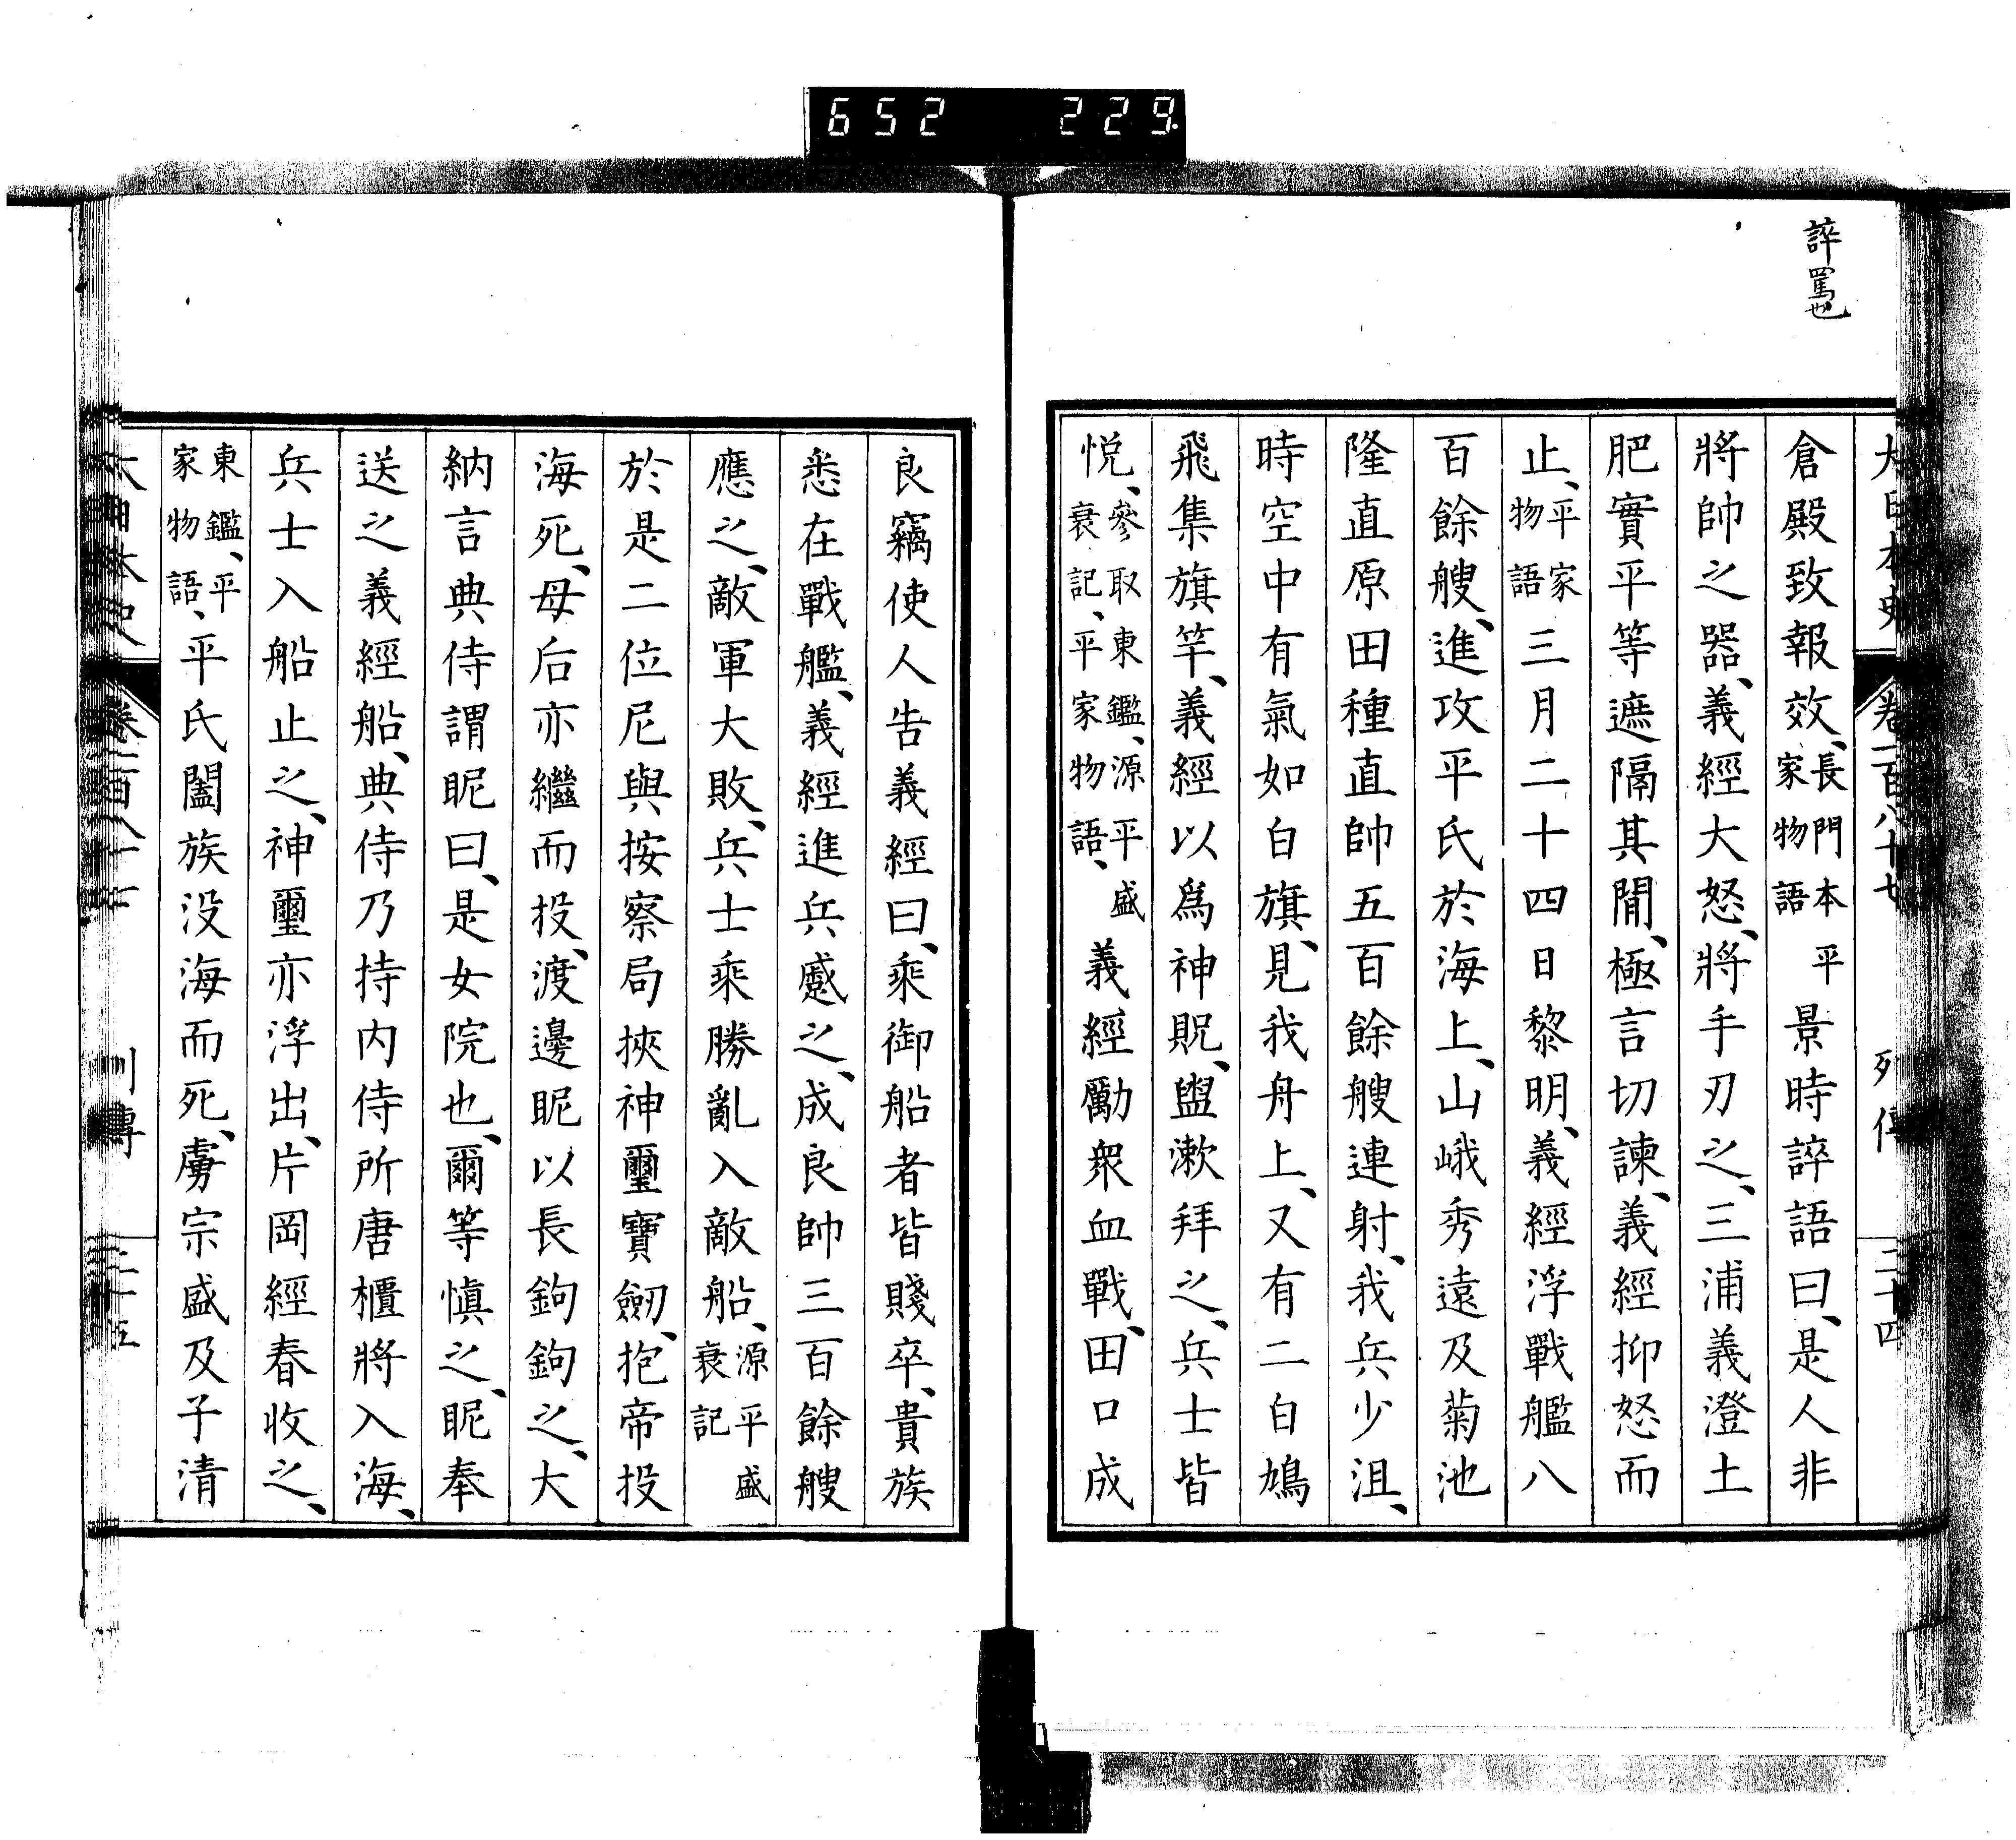 652 229
誶罵也
大日本史 卷一百八十七 列傳 二十四
倉殿致報效、長門本平家物語景時誶語曰、是人非
將帥之器、義經大怒、將手刃之、三浦義澄土
肥實平等遮隔其閒、極言切諫、義經抑怒而
止、平家物語三月二十四日黎明、義經浮戰艦八
百餘艘、進攻平氏於海上、山峨秀遠及菊池
隆直原田種直帥五百餘艘連射、我兵少沮、
時空中有氣如白旗、見我舟上、又有二白鳩
飛集旗竿、義經以爲神貺、盥漱拜之、兵士皆
悦、參取東鑑、源平盛衰記、平家物語、義經勵衆血戰、田口成
良竊使人告義經曰、乘御船者皆賤卒、貴族
悉在戰艦、義經進兵蹙之、成良帥三百餘艘
應之、敵軍大敗、兵士乘勝亂入敵船、源平盛衰記
於是二位尼與按察局挾神璽寶劒、抱帝投
海死、母后亦繼而投、渡邊眤以長鉤鉤之、大
納言典侍謂眤曰、是女院也、爾等愼之、眤奉
送之義經船、典侍乃持内侍所唐櫃將入海、
兵士入船止之、神璽亦浮出、片岡經春收之、
東鑑、平家物語、平氏闔族没海而死、虜宗盛及子清
大日本史 卷一百八十七 列傳 二十五